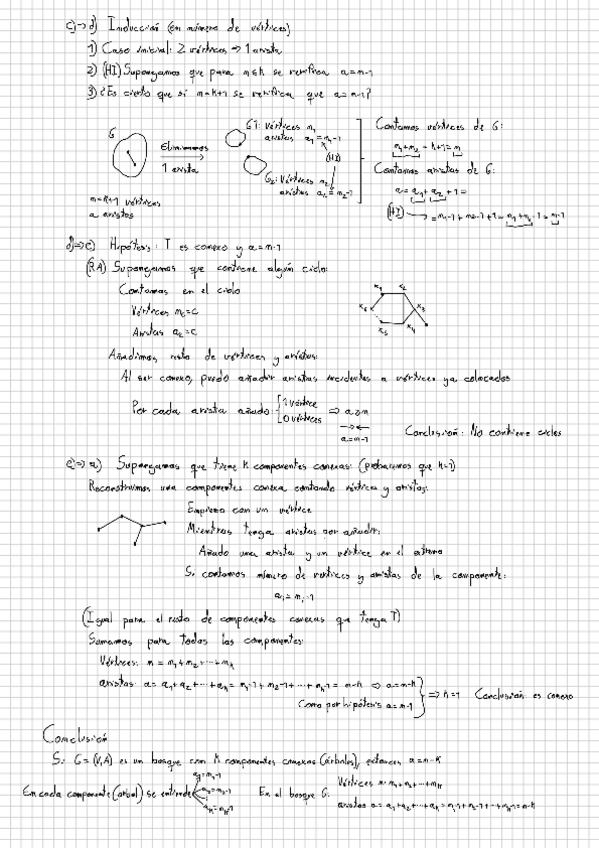 c)→d) Inducción (en número de vértices)
1) Caso inicial: 2 vértices → 1 arista
2) (HI) Supongamos que para n≤k se verifica a=n-1
3) ¿Es cierto que si n=k+1 se verifica que a=n-1?
G
n=k+1 vértices
a aristas
Eliminamos
1 arista
G1: vértices n₁
aristas a₁=n₁-1
(HI)
G₂: Vértices n₂
aristas a₂=n₂-1
Contamos vértices de G:
n₁+n₂=k+1=n
Contamos aristas de G:
a=a₁+a₂+1=
(HI) =n₁-1+n₂-1+1=n₁+n₂-1=n-1
d)⇒e) Hipótesis: T es conexo y a=n-1
(RA) Supongamos que contiene algún ciclo:
Contamos en el ciclo
Vértices n_c=c
Aristas a_c=c
x₁ x₂ x₃ x₄ x₅ x₆
Añadimos resto de vértices y aristas:
Al ser conexo, puedo añadir aristas incidentes a vértices ya colocados
Por cada arista añado { 1 vértice
0 vértices ⇒ a≥n
→←
a=n-1
Conclusión: No contiene ciclos
e)⇒a) Supongamos que tiene k componentes conexas: (probaremos que k=1)
Reconstruimos una componentes conexa contando vértices y aristas:
Empiezo con un vértice
Mientras tenga aristas por añadir:
Añado una arista y un vértice en el extremo
Si contamos número de vértices y aristas de la componente:
a₁=n₁-1
(Igual para el resto de componentes conexas que tenga T)
Sumamos para todas las componentes:
Vértices: n=n₁+n₂+···+nₖ
aristas: a=a₁+a₂+···+aₖ=n₁-1+n₂-1+···+nₖ-1=n-k ⇒ a=n-k
Como por hipótesis a=n-1 } ⇒ k=1 Conclusión es conexo
Conclusión
Si G=(V,A) es un bosque con k componentes conexas (árboles), entonces a=n-k
En cada componente (árbol) se
a₁=n₁-1
a₂=n₂-1
aₖ=nₖ-1
En el bosque G:
Vértices n=n₁+n₂+···+nₖ
aristas a=a₁+a₂+···+aₖ=n₁-1+n₂-1+···+nₖ-1=n-k